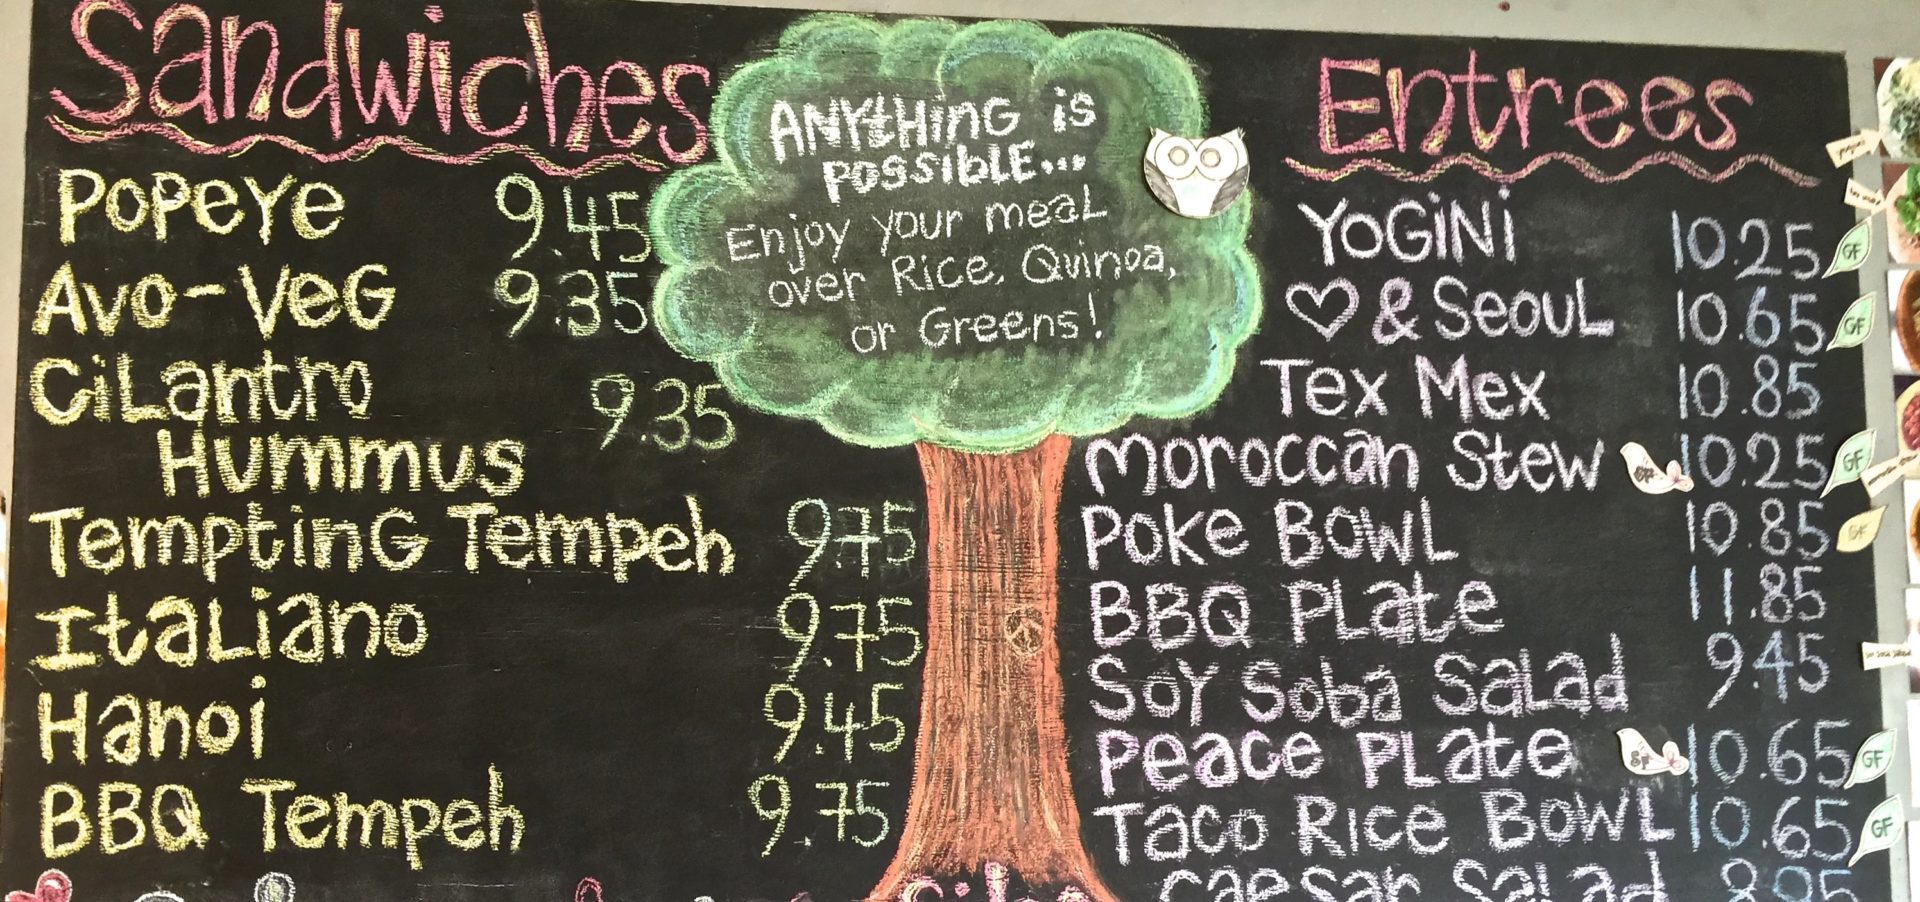 Sandwiches
Popeye 9.45
Avo-Veg 9.35
Cilantro
Hummus 9.35
Tempting Tempeh 9.75
Italiano 9.75
Hanoi 9.45
BBQ Tempeh 9.75
ANYtHiNG is
possible...
Enjoy your meal
over Rice, Quinoa,
or Greens!
Entrees
YoGiNi 10.25 GF
♡ & Seoul 10.65 GF
Tex Mex 10.85
Moroccan Stew SP 10.25 GF
Poke Bowl 10.85 GF
BBQ Plate 11.85
Soy Soba Salad 9.45
Peace Plate SP 10.65 GF
Taco Rice Bowl 10.65 GF
Caesar Salad